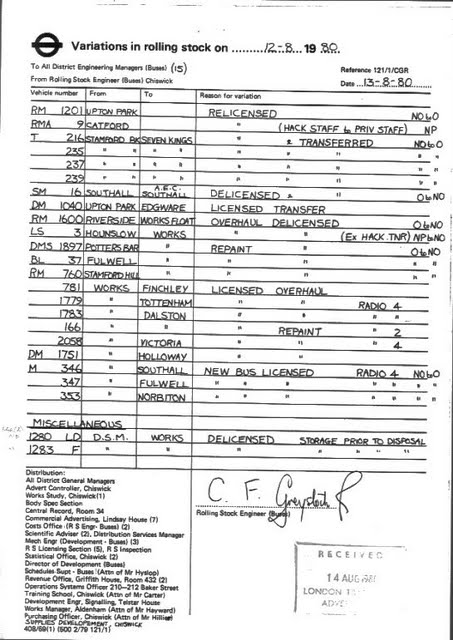 Variations in rolling stock on 12-8 1980
To All District Engineering Managers (Buses) (15)
Reference 121/1/CGR
From Rolling Stock Engineer (Buses) Chiswick
Date 13-8-80
Vehicle number From To Reason for variation
RM 1201 UPTON PARK RELICENSED NO to O
RMA 9 CATFORD " (HACK STAFF to PRIV STAFF) NP
T 216 STAMFORD BK SEVEN KINGS " & TRANSFERRED NO to O
235 " " " " " " " "
237 " " " " " " " "
239 " " " " " " " "
SM 16 SOUTHALL A.E.C. SOUTHALL DELICENSED & " O to NO
DM 1040 UPTON PARK EDGWARE LICENSED TRANSFER
RM 1600 RIVERSIDE WORKS FLOAT OVERHAUL DELICENSED O to NO
LS 3 HOUNSLOW WORKS " " (Ex HACK. TNR) NP to NO
DMS 1897 POTTERS BAR " REPAINT " O to NO
BL 37 FULWELL " " " "
RM 760 STAMFORD HILL " " " "
781 WORKS FINCHLEY LICENSED OVERHAUL
1779 " TOTTENHAM " " RADIO 4
1783 " DALSTON " " " "
166 " " " REPAINT " 2
2058 " VICTORIA " " " 4
DM 1751 " HOLLOWAY " "
M 346 " SOUTHALL NEW BUS LICENSED RADIO 4 NO to O
347 " FULWELL " " " " " "
353 " NORBITON " " " " " "
MISCELLANEOUS
1280 LD D.S.M. WORKS DELICENSED STORAGE PRIOR TO DISPOSAL
1283 F " " " " " "
Distribution:
All District General Managers
Advert Controller, Chiswick
Works Study, Chiswick (1)
Body Spec Section
Central Record, Room 34
Commercial Advertising, Lindsay House (7)
Costs Office (R S Engr- Buses) (2)
Scientific Adviser (2), Distribution Services Manager
Mech Engr (Development - Buses) (3)
R S Licensing Section (5), R S Inspection
Statistical Office, Chiswick (2)
Director of Development (Buses)
Schedules Supt - Buses (Attn of Mr Hyslop)
Revenue Office, Griffith House, Room 432 (2)
Operations Systems Officer 210-212 Baker Street
Training School, Chiswick (Attn of Mr Carter)
Development Engr, Signalling, Telstar House
Works Manager, Aldenham (Attn of Mr Hayward)
Purchasing Officer, Chiswick (Attn of Mr Hillier)
SUPPLIES DEVELOPEMENT, CHISWICK
408/69(1) (500 2/79 121/1)
C. F.
Rolling Stock Engineer (Buses)
RECEIVED
14 AUG
LONDON
ADVE